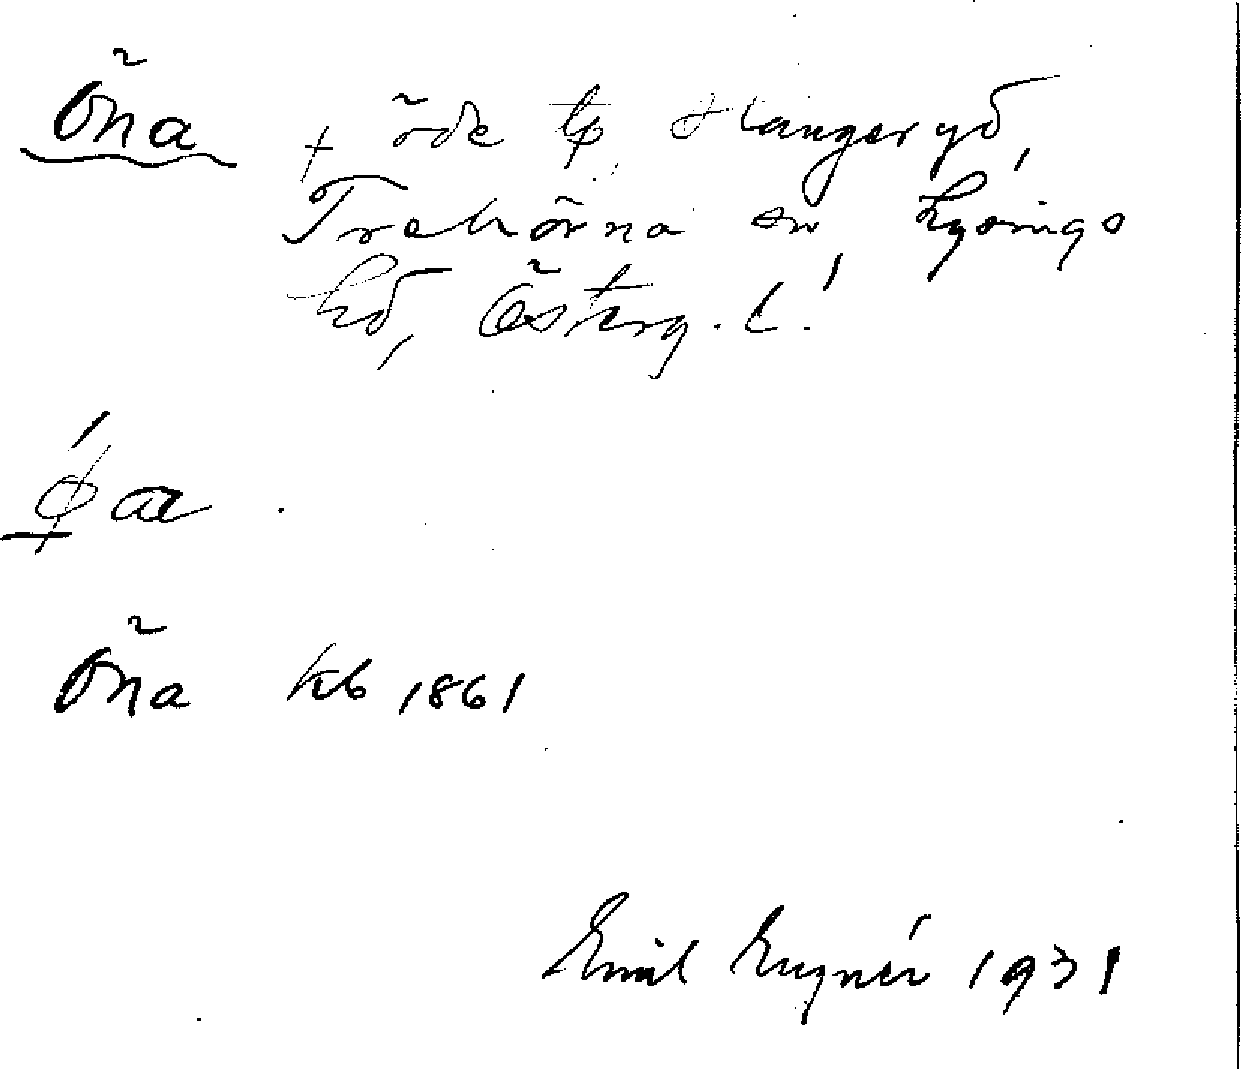 Öna + öde tp, Stångeryd,
Trehörna sn, Lysings
hd, Österg. l.
Öna kb 1861
Emil Eugnér 1931